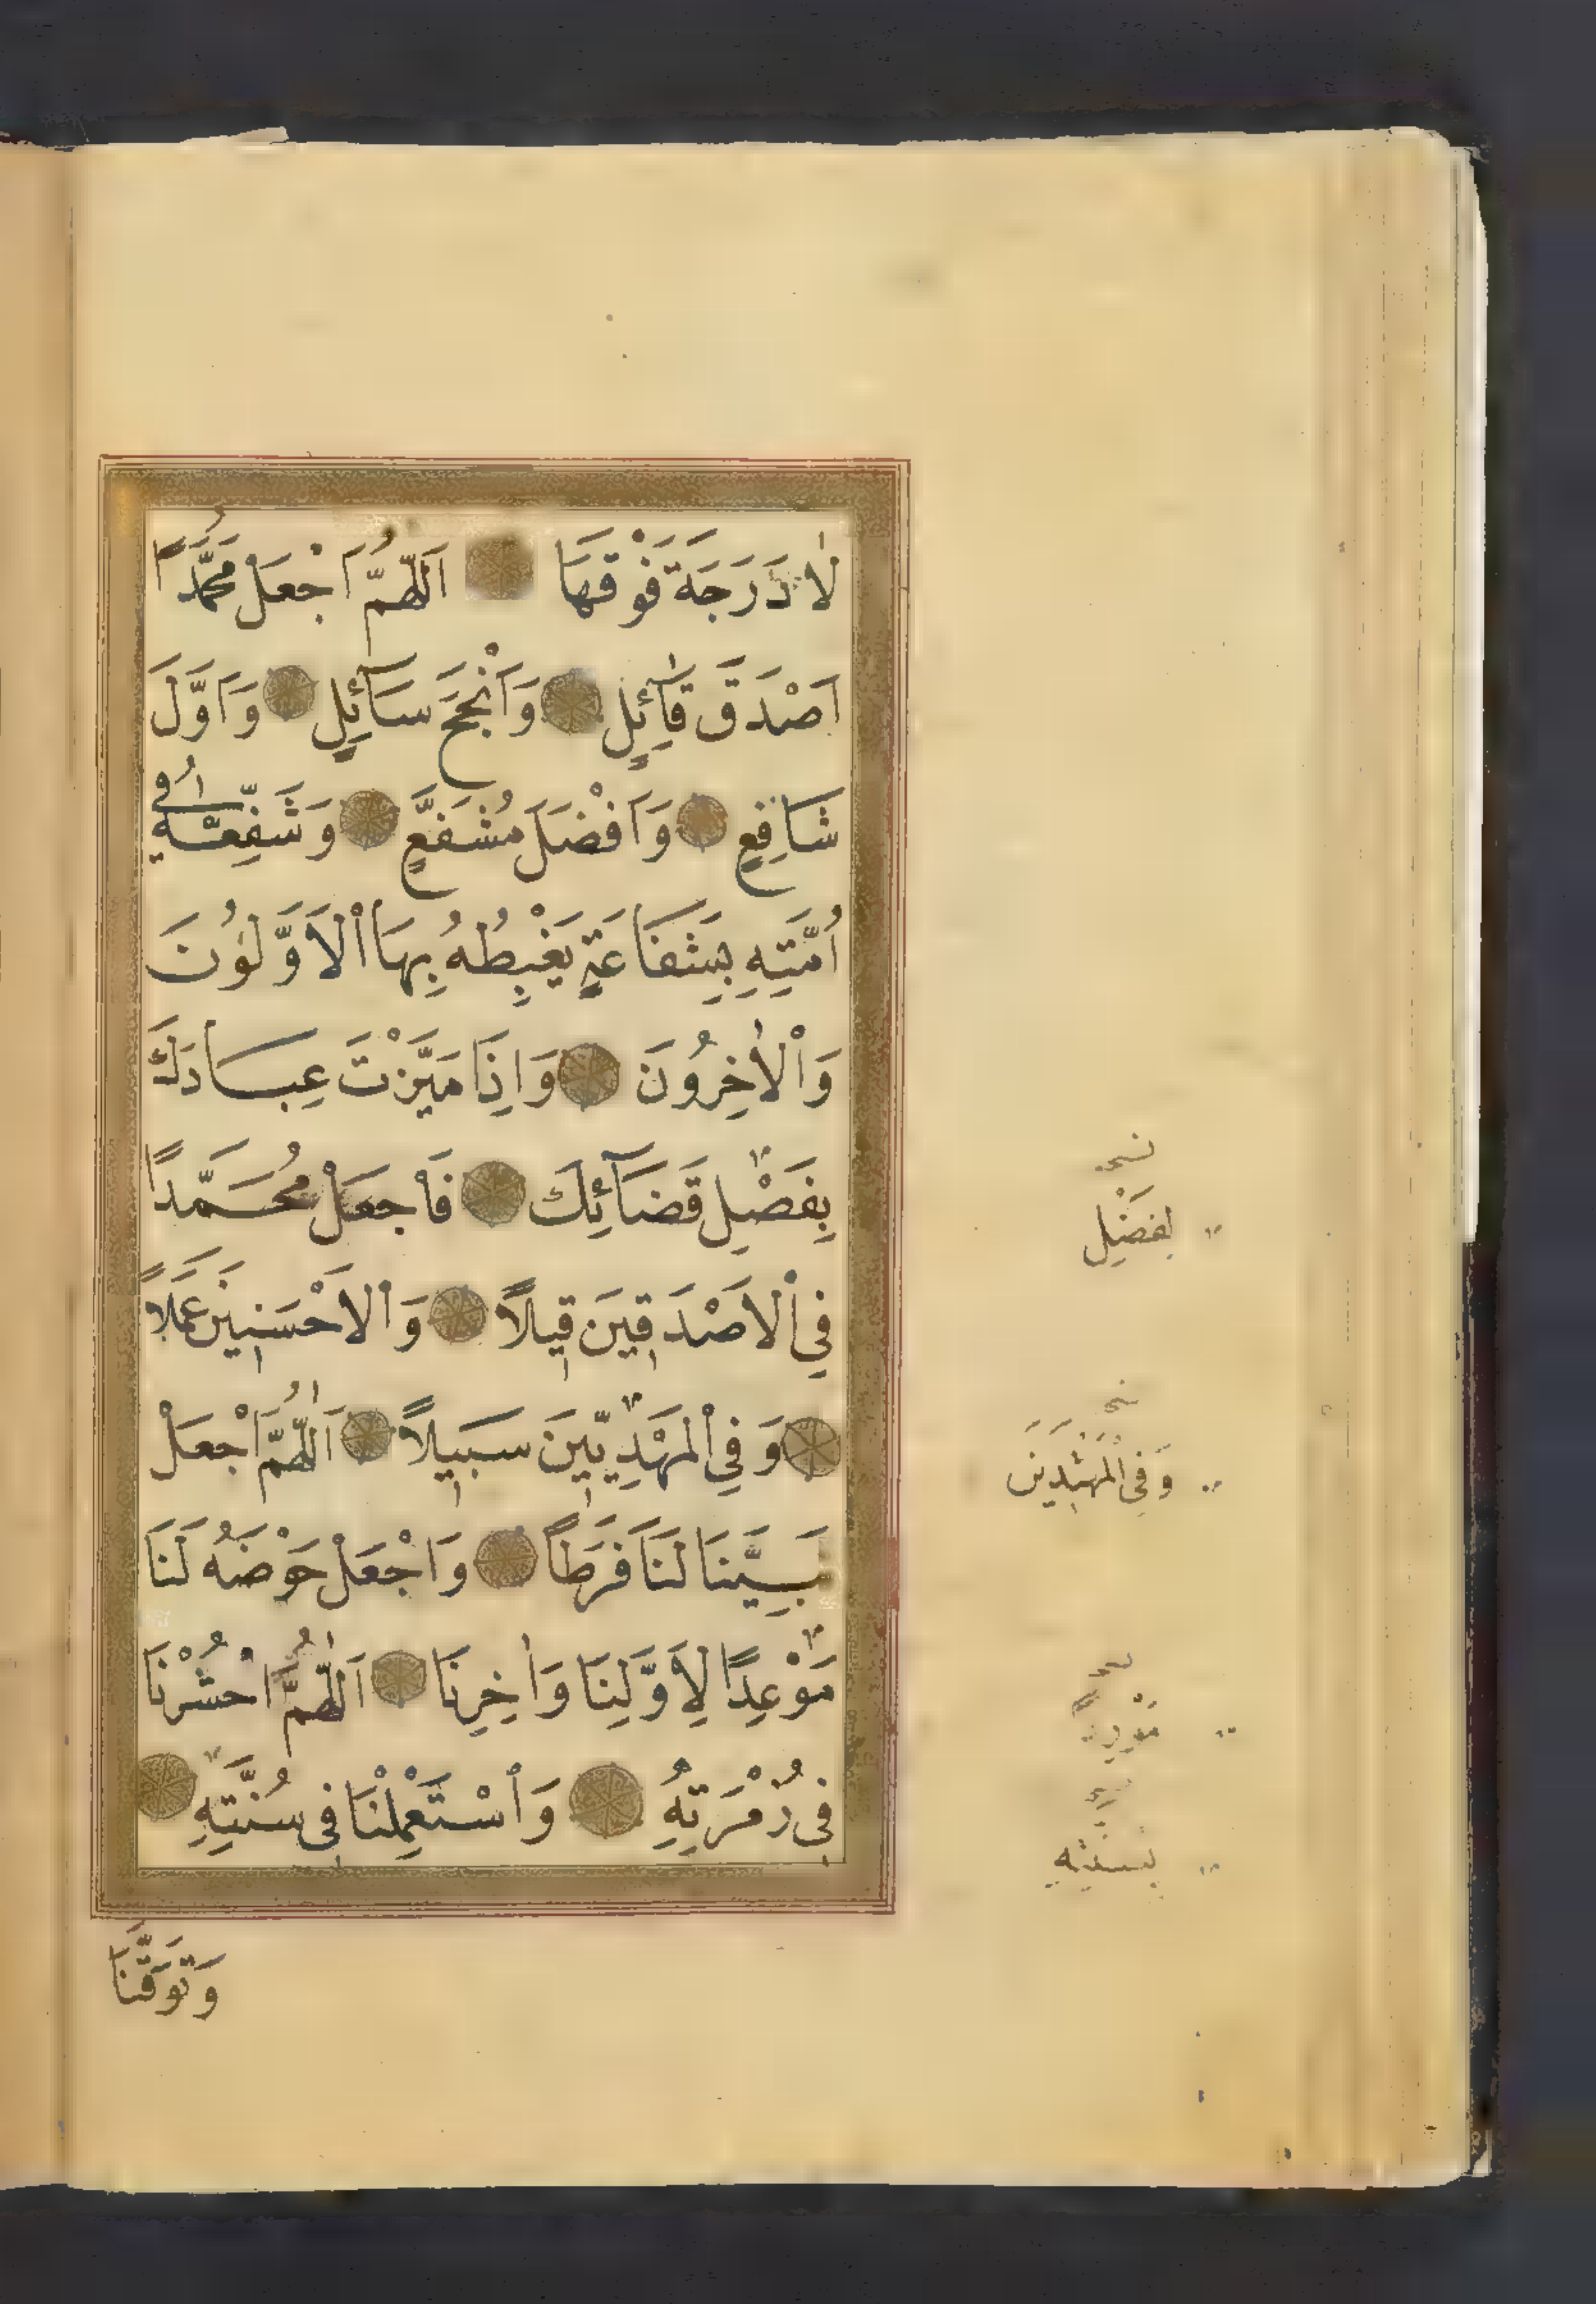 لَا دَرَجَةَ فَوْقَهَا اَللّٰهُمَّ اجْعَلْ مُحَمَّدًا
اَصْدَقَ قَآئِلٍ وَاَنْجَحَ سَآئِلٍ وَاَوَّلَ
شَافِعٍ وَاَفْضَلَ مُشَفَّعٍ وَشَفِّعْهُ فِي
اُمَّتِهِ بِشَفَاعَةٍ يَغْبِطُهُ بِهَا الْاَوَّلُوْنَ
وَالْاٰخِرُوْنَ وَاِذَا مَيَّزْتَ عِبَادَكَ
بِفَصْلِ قَضَآئِكَ فَاجْعَلْ مُحَمَّدًا
فِي الْاَصْدَقِيْنَ قِيْلًا وَالْاَحْسَنِيْنَ عَمَلًا
وَفِي الْمَهْدِيِّيْنَ سَبِيْلًا اَللّٰهُمَّ اجْعَلْ
نَبِيَّنَا لَنَا فَرَطًا وَاجْعَلْ حَوْضَهُ لَنَا
مَوْعِدًا لِاَوَّلِنَا وَاٰخِرِنَا اَللّٰهُمَّ احْشُرْنَا
فِيْ زُمْرَتِهِ وَاسْتَعْمِلْنَا فِيْ سُنَّتِهِ
وَتَوَفَّنَا
نسخه
وَفِي الْمُهْتَدِيْنَ
بِسُنَّتِهِ